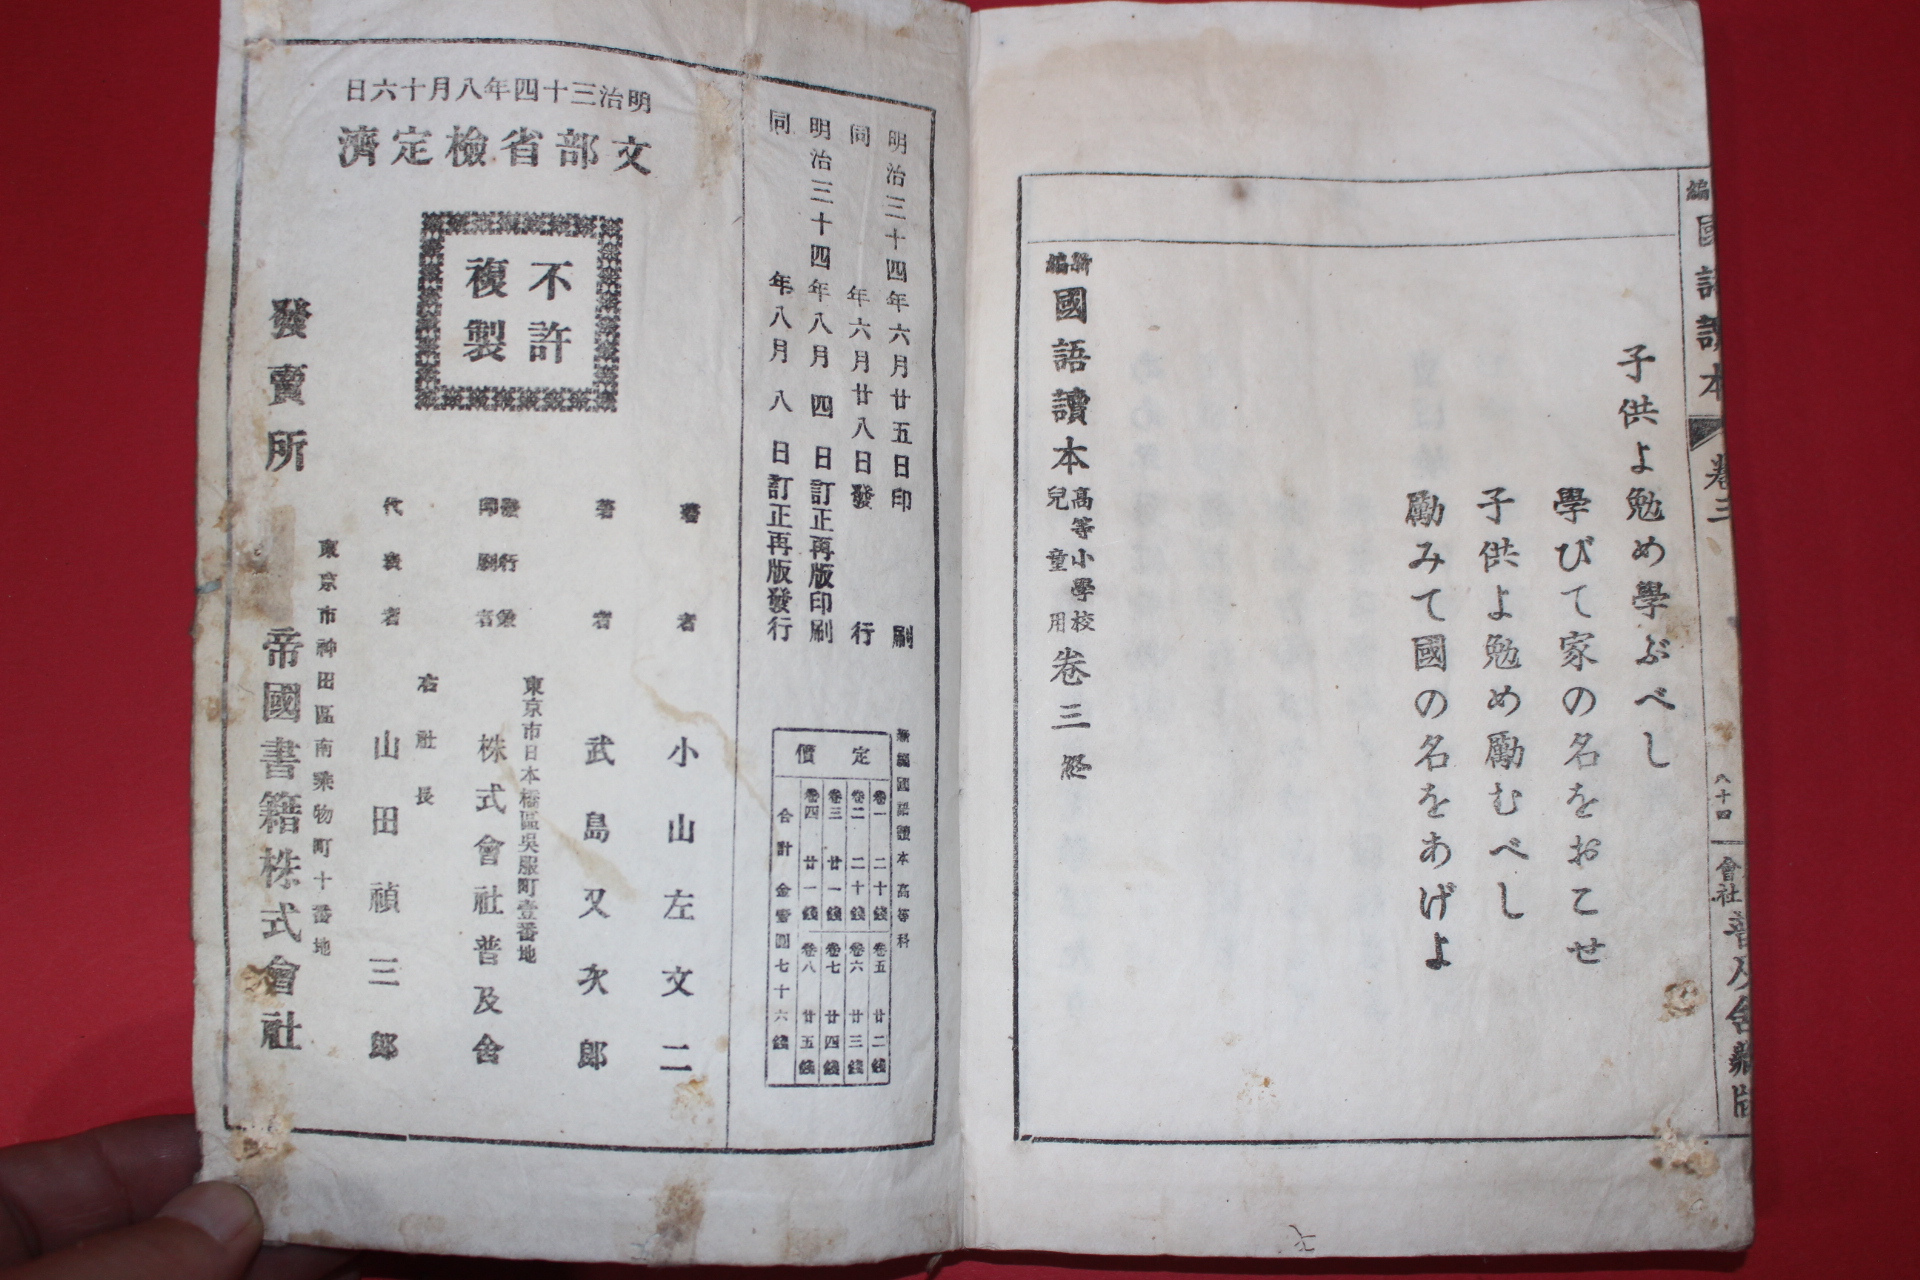 編
國語讀本
卷三
八十四
會社
普及舍藏版
子供よ勉め學ぶべし
學びて家の名をおこせ
子供よ勉め勵むべし
勵みて國の名をあげよ
新編國語讀本高等小學校兒童用卷三終
明治三十四年六月廿五日印刷
同年六月廿八日發行
明治三十四年八月四日訂正再版印刷
同年八月八日訂正再版發行
新編國語讀本高等科
定價
卷一 二十錢 卷五 廿二錢
卷二 二十錢 卷六 廿三錢
卷三 廿一錢 卷七 廿四錢
卷四 廿一錢 卷八 廿五錢
合計金壹圓七十六錢
明治三十四年八月十六日
文部省檢定濟
不許
複製
著者 小山左文二
著者 武島又次郎
東京市日本橋區吳服町壹番地
發行兼印刷者 株式會社普及舍
右社長
代表者 山田禎三郎
東京市神田區南乘物町十番地
發賣所 帝國書籍株式會社